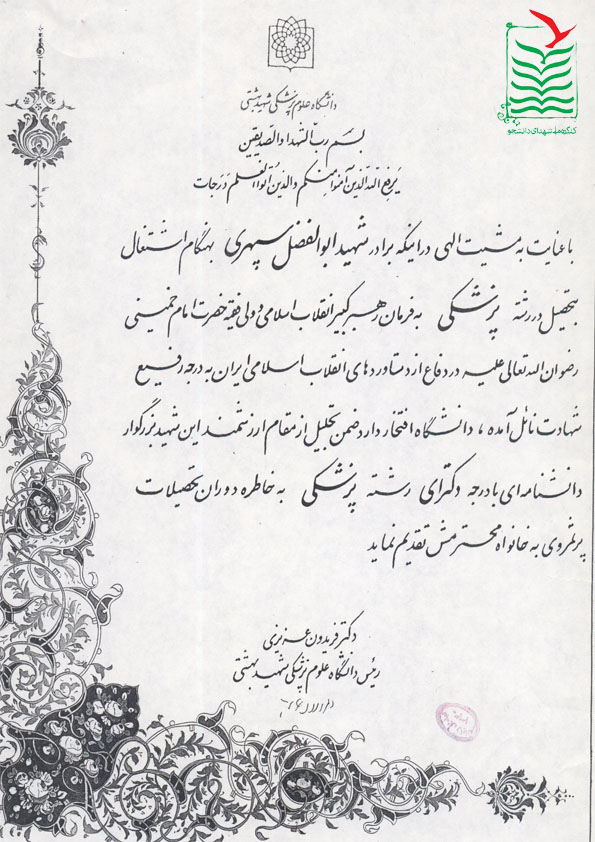 کنگره ملی شهدای دانشجو
دانشگاه علوم پزشکی شهید بهشتی
بسم رب الشهداء والصدیقین
یرفع الله الذین آمنوا منکم والذین اوتوا العلم درجات
با عنایت به مشیت الهی در اینکه برادر شهید ابوالفضل سپهری بهنگام اشتغال
بتحصیل در رشته پزشکی به فرمان رهبر کبیر انقلاب اسلامی و ولی فقیه حضرت امام خمینی
رضوان الله تعالی علیه در دفاع از دستاوردهای انقلاب اسلامی ایران به درجه رفیع
شهادت نائل آمده، دانشگاه افتخار دارد ضمن تجلیل از مقام ارزشمند این شهید بزرگوار
دانشنامه‌ای با درجه دکترای رشته پزشکی به خاطره دوران تحصیلات
پرثمروی به خانواده محترمش تقدیم نماید
دکتر فریدون عزیزی
رئیس دانشگاه علوم پزشکی شهید بهشتی